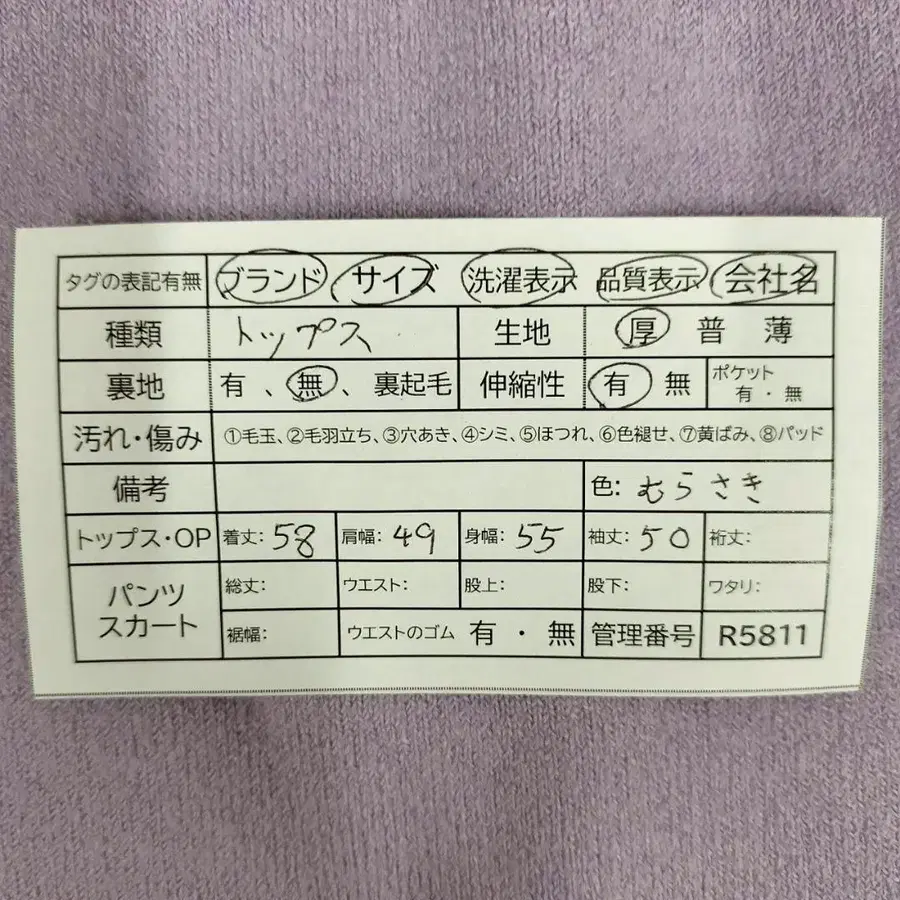 タグの表記有無 ブランド サイズ 洗濯表示 品質表示 会社名
種類 トップス 生地 厚 普 薄
裏地 有 、 無 、 裏起毛 伸縮性 有 無 ポケット 有 ・ 無
汚れ・傷み ①毛玉、②毛羽立ち、③穴あき、④シミ、⑤ほつれ、⑥色褪せ、⑦黄ばみ、⑧パッド
備考 色: むらさき
トップス・OP 着丈: 58 肩幅: 49 身幅: 55 袖丈: 50 裄丈:
パンツ スカート 総丈: ウエスト: 股上: 股下: ワタリ:
裾幅: ウエストのゴム 有 ・ 無 管理番号 R5811